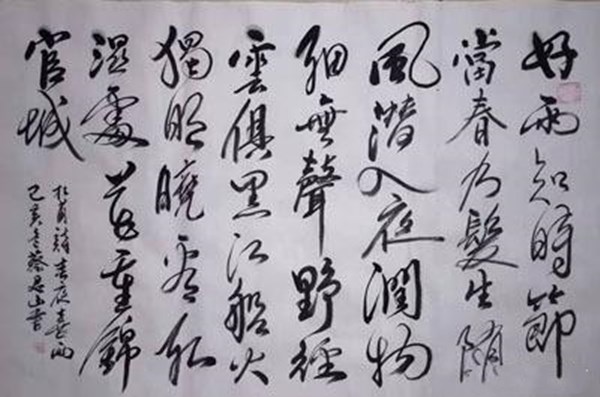 好雨知時節
當春乃髮生随
風潛入夜潤物
細無聲野徑
雲俱黑江船火
獨明曉看紅
濕處花重錦
官城
杜甫詩春夜喜雨
己亥冬蔡山書